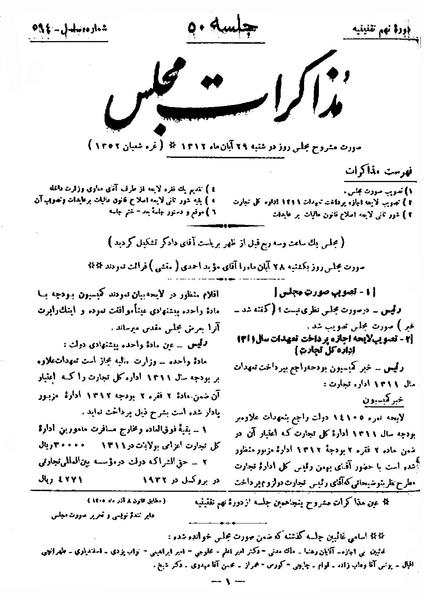 دورهٔ نهم تقنینیه
جلسه ۵۰
شماره مسلسل ۵۹۴
مذاکرات مجلس
صورت مشروح مجلس روز دوشنبه ۲۹ آبان ماه ۱۳۱۲ * (غره شعبان ۱۳۵۲)
فهرست مذاکرات
۱) تصویب صورت مجلس.
۲) تصویب لایحه اجازه پرداخت تعهدات ۱۳۱۱ اداره کل تجارت
۳) شور ثانی لایحه اصلاح قانون مالیات بر عایدات
۴) تقدیم یک فقره لایحه از طرف آقای معاون وزارت داخله
۵) بقیه شور ثانی لایحه اصلاح قانون مالیات بر عایدات و تصویب آن
۶) موقع و دستور جلسهٔ بعد - ختم جلسه
(مجلس یک ساعت و سه ربع قبل از ظهر بریاست آقای دادگر تشکیل گردید)
صورت مجلس روز یکشنبه ۲۸ آبان ماه را آقای مؤید احمدی (منشی) قرائت نمودند **
[۱- تصویب صورت مجلس]
رئیس - در صورت مجلس نظری نیست؟ (گفته شد -
خیر) صورت مجلس تصویب شد.
[۲- تصویب لایحه اجازه پرداخت تعهدات سال ۱۳۱۱
اداره کل تجارت]
رئیس - خبر کمیسیون بودجه راجع بپرداخت تعهدات
سال ۱۳۱۱ اداره تجارت:
خبر کمیسیون
لایحه نمره ۱۴۱۰۵ دولت راجع بتعهدات علاوه بر
بودجه سال ۱۳۱۱ ادارهٔ کل تجارت که اعتبار آن در
ضمن ماده ۲ فقره ۲ بودجه ۱۳۱۲ ادارهٔ مزبور منظور
شده است با حضور آقای بهمن رئیس کل اداره تجارت
مطرح نظر بتوضیحاتی که آقای رئیس تجارت دولزوم پرداخت
اقلام منظور در لایحه بیان نمودند کمیسیون بودجه با
مادهٔ واحده پیشنهادی عیناً موافقت نموده و اینک راپرت
آنرا بعرض مجلس مقدس میرساند.
رئیس - عین مادهٔ واحده پیشنهادی دولت:
مادهٔ واحده - وزارت مالیه مجاز است تعهدات علاوه
بر بودجه سال ۱۳۱۱ ادارهٔ کل تجارت را که اعتبار
آن ضمن مادهٔ ۲ فقره ۲ بودجه ۱۳۱۲ ادارهٔ مزبور
پادار شده است بشرح ذیل پرداخت نماید.
۱ - بقیهٔ فوق العاده و مخارج مسافرت مامورین ادارهٔ
کل تجارت اعزامی بولایات در ۱۳۱۱ ۳۰۰۰۰ ریال
۲ - حق الشراکه دولت در مؤسسه بین المللی تعاونی
در بروکسل در ۱۹۳۲ ۴۲۷۱ ریال
* عین مذاکرات مشروح پنجاهمین جلسه از دورهٔ نهم تقنینیه
(مطابق قانون ۸ آذر ماه ۱۳۰۵)
دایره تندنویسی و تحریر صورت مجلس
** اسامی غائبین جلسه گذشته که ضمن صورت مجلس خوانده شده:
غائبین بی اجازه - آقایان رهنما - ملک مدنی - دکتر امیر اعلم - امیر ابراهیمی - نواب یزدی - اسفندیاری - طهرانچی
اقبال - یونس آقا وهاب زاده - قوام - چایچی - کورس - محسن آقا مهدوی - دکتر شیخ.
- ۱ -